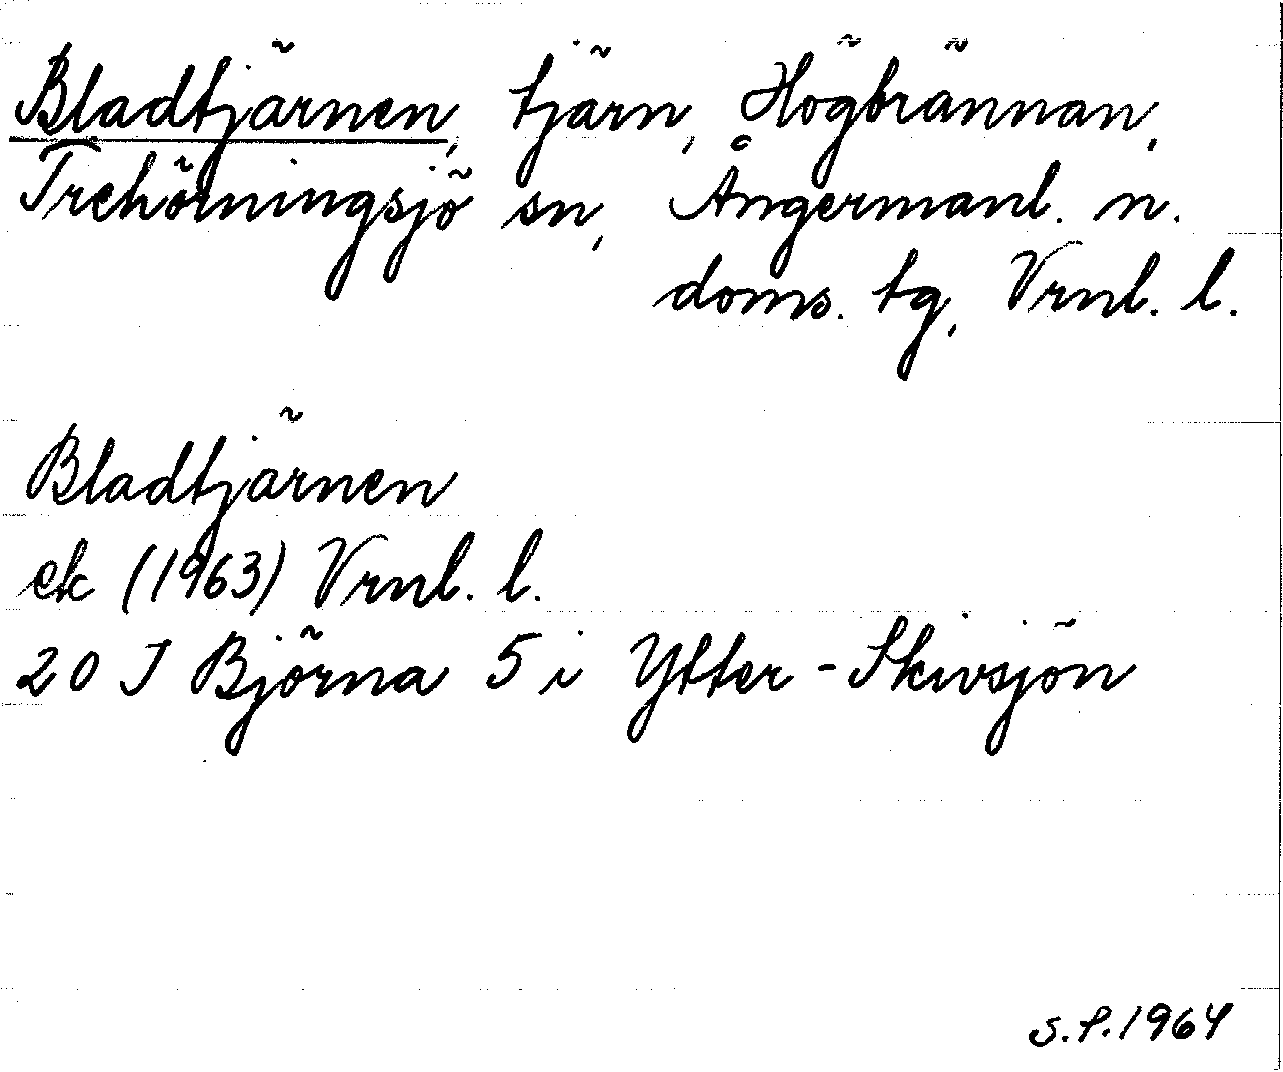 Bladtjärnen, tjärn, Högbrännan,
Trehörningsjö sn, Ångermanl. n.
doms. tg, Vrnl. l.
Bladtjärnen
ek (1963) Vrnl. l.
20 J Björna 5 i Ytter-Skivsjön
S.P. 1964